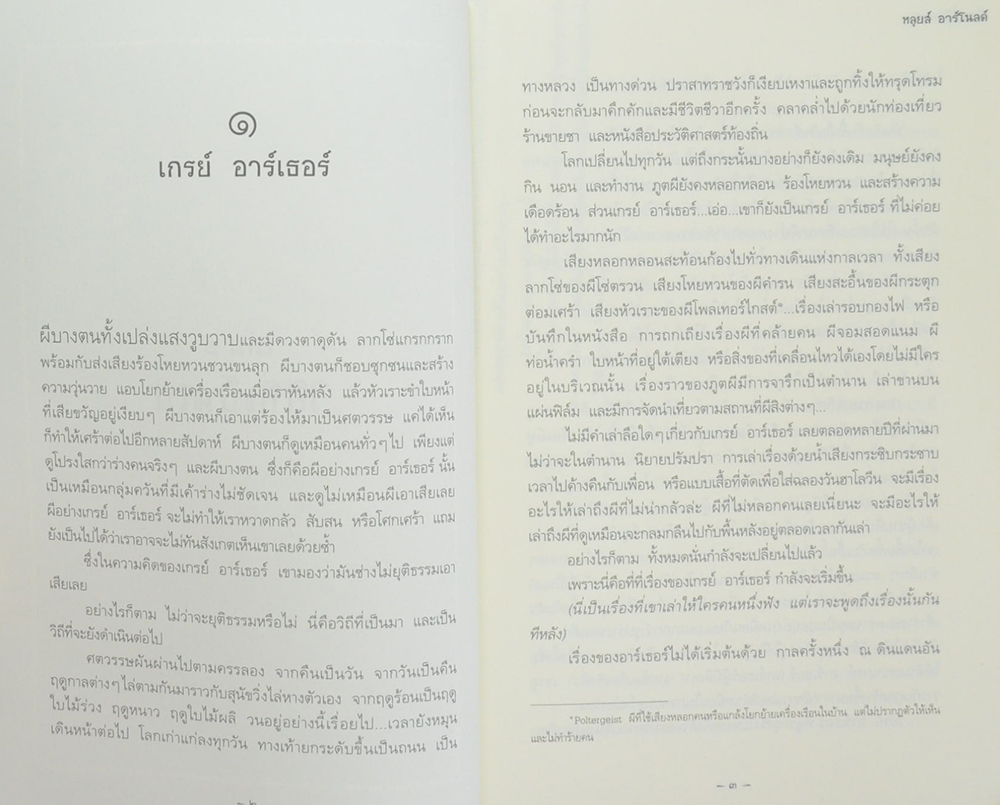 ๑
เกรย์ อาร์เธอร์
ผีบางตนทั้งเปล่งแสงวูบวาบและมีดวงตาดุดัน ลากโซ่แกรกกราก
พร้อมกับส่งเสียงร้องโหยหวนชวนขนลุก ผีบางตนก็ชอบซุกซนและสร้าง
ความวุ่นวาย แอบโยกย้ายเครื่องเรือนเมื่อเราหันหลัง แล้วหัวเราะขำใบหน้า
ที่เสียขวัญอยู่เงียบๆ ผีบางตนก็เอาแต่ร้องไห้มาเป็นศตวรรษ แค่ได้เห็น
ก็ทำให้เศร้าต่อไปอีกหลายสัปดาห์ ผีบางตนก็ดูเหมือนคนทั่วๆ ไป เพียงแต่
ดูโปร่งใสกว่าร่างคนจริงๆ และผีบางตน ซึ่งก็คือผีอย่างเกรย์ อาร์เธอร์ นั้น
เป็นเหมือนกลุ่มควันที่มีเค้าร่างไม่ชัดเจน และดูไม่เหมือนผีเอาเสียเลย
ผีอย่างเกรย์ อาร์เธอร์ จะไม่ทำให้เราหวาดกลัว สับสน หรือโศกเศร้า แถม
ยังเป็นไปได้ว่าเราอาจจะไม่ทันสังเกตเห็นเขาเลยด้วยซ้ำ
ซึ่งในความคิดของเกรย์ อาร์เธอร์ เขามองว่ามันช่างไม่ยุติธรรมเอา
เสียเลย
อย่างไรก็ตาม ไม่ว่าจะยุติธรรมหรือไม่ นี่คือวิถีที่เป็นมา และเป็น
วิถีที่จะยังดำเนินต่อไป
ศตวรรษผันผ่านไปตามครรลอง จากคืนเป็นวัน จากวันเป็นคืน
ฤดูกาลต่างๆ ไล่ตามกันมาราวกับสุนัขวิ่งไล่หางตัวเอง จากฤดูร้อนเป็นฤดู
ใบไม้ร่วง ฤดูหนาว ฤดูใบไม้ผลิ วนอยู่อย่างนี้เรื่อยไป...เวลายังหมุน
เดินหน้าต่อไป โลกเก่าแก่ลงทุกวัน ทางเท้ายกระดับขึ้นเป็นถนน เป็น
– ๒ –
หลุยส์ อาร์โนลด์
ทางหลวง เป็นทางด่วน ปราสาทราชวังก็เงียบเหงาและถูกทิ้งให้ทรุดโทรม
ก่อนจะกลับมาคึกคักและมีชีวิตชีวาอีกครั้ง คลาคล่ำไปด้วยนักท่องเที่ยว
ร้านขายชา และหนังสือประวัติศาสตร์ท้องถิ่น
โลกเปลี่ยนไปทุกวัน แต่ถึงกระนั้นบางอย่างก็ยังคงเดิม มนุษย์ยังคง
กิน นอน และทำงาน ภูตผียังคงหลอกหลอน ร้องโหยหวน และสร้างความ
เดือดร้อน ส่วนเกรย์ อาร์เธอร์...เอ่อ...เขาก็ยังเป็นเกรย์ อาร์เธอร์ ที่ไม่ค่อย
ได้ทำอะไรมากนัก
เสียงหลอกหลอนสะท้อนก้องไปทั่วทางเดินแห่งกาลเวลา ทั้งเสียง
ลากโซ่ของผีโซ่ตรวน เสียงโหยหวนของผีคำรน เสียงสะอื้นของผีกระตุก
ต่อมเศร้า เสียงหัวเราะของผีโพลเทอร์ไกสต์*...เรื่องเล่ารอบกองไฟ หรือ
บันทึกในหนังสือ การถกเถียงเรื่องผีที่คล้ายคน ผีจอมสอดแนม ผี
ท่อน้ำครำ ใบหน้าที่อยู่ใต้เตียง หรือสิ่งของที่เคลื่อนไหวได้เองโดยไม่มีใคร
อยู่ในบริเวณนั้น เรื่องราวของภูตผีมีการจารึกเป็นตำนาน เล่าขานบน
แผ่นฟิล์ม และมีการจัดนำเที่ยวตามสถานที่ผีสิงต่างๆ...
ไม่มีคำเล่าลือใดๆ เกี่ยวกับเกรย์ อาร์เธอร์ เลยตลอดหลายปีที่ผ่านมา
ไม่ว่าจะในตำนาน นิยายปรัมปรา การเล่าเรื่องด้วยน้ำเสียงกระซิบกระซาบ
เวลาไปค้างคืนกับเพื่อน หรือแบบเสื้อที่ตัดเพื่อใส่ฉลองวันฮาโลวีน จะมีเรื่อง
อะไรให้เล่าถึงผีที่ไม่น่ากลัวล่ะ ผีที่ไม่หลอกคนเลยเนี่ยนะ จะมีอะไรให้
เล่าถึงผีที่ดูเหมือนจะกลมกลืนไปกับพื้นหลังอยู่ตลอดเวลากันเล่า
อย่างไรก็ตาม ทั้งหมดนั่นกำลังจะเปลี่ยนไปแล้ว
เพราะนี่คือที่ที่เรื่องของเกรย์ อาร์เธอร์ กำลังจะเริ่มขึ้น
(นี่เป็นเรื่องที่เขาเล่าให้ใครคนหนึ่งฟัง แต่เราจะพูดถึงเรื่องนั้นกัน
ทีหลัง)
เรื่องของอาร์เธอร์ไม่ได้เริ่มต้นด้วย กาลครั้งหนึ่ง ณ ดินแดนอัน
*Poltergeist ผีที่ใช้เสียงหลอกคนหรือแกล้งโยกย้ายเครื่องเรือนในบ้าน แต่ไม่ปรากฏตัวให้เห็น
และไม่ทำร้ายคน
– ๓ –